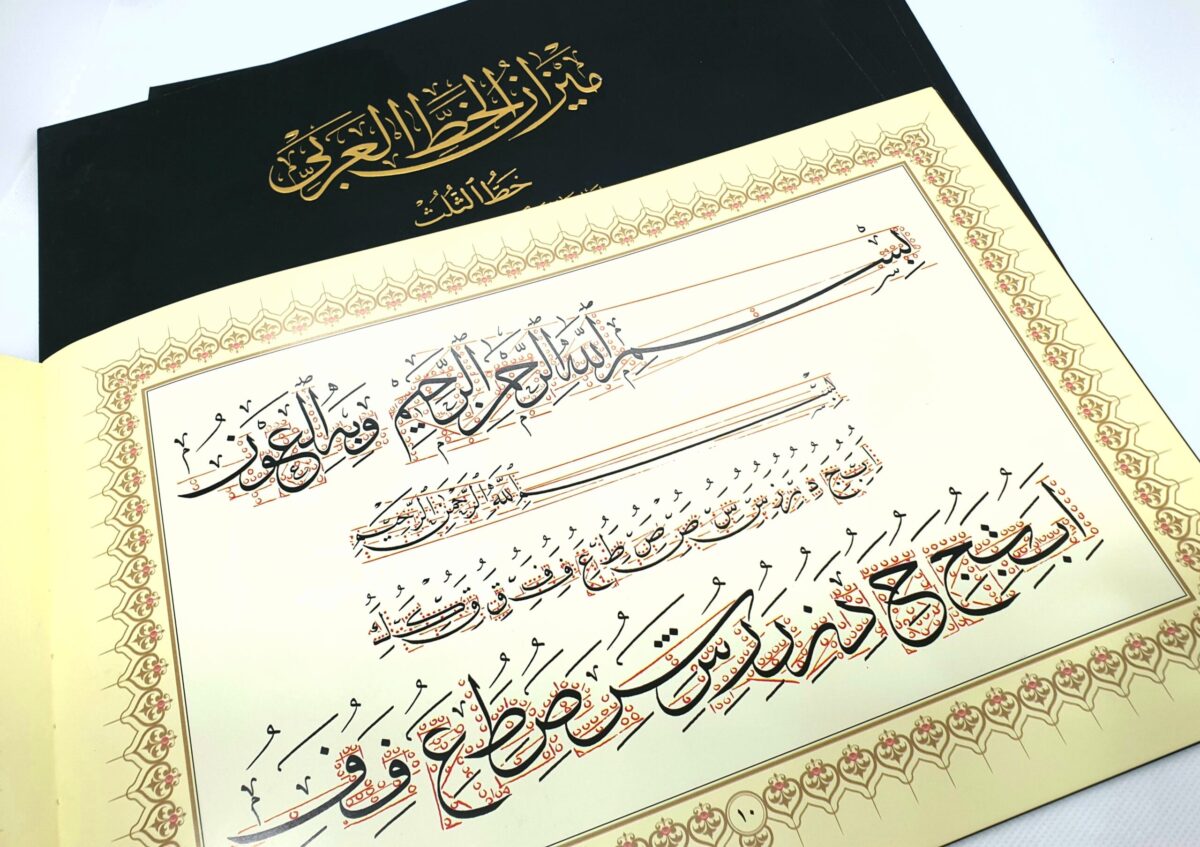 ميزان الخط العربي
خط الثلث
بسم الله الرحمن الرحيم وبه العون
بسم الله الرحمن الرحيم
ا ب ت ج د ر ز س س ص ص ط ع و ف ق و ك ك
ا ب ت ج ح د ر ز س ص ط ع و ف
١٠